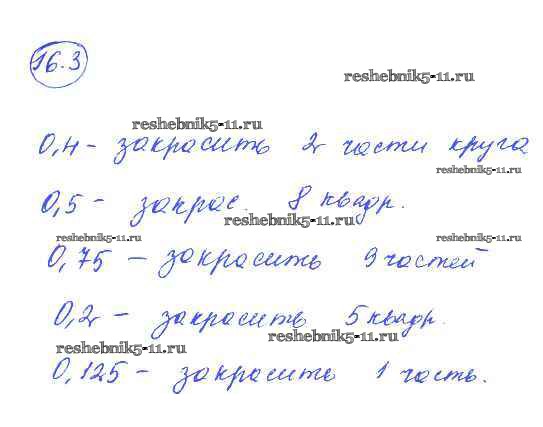 16.3
reshebnik5-11.ru
reshebnik5-11.ru
0,4 - закрасить 2 части круга
reshebnik5-11.ru
0,5 - закрас. 8 квадр.
reshebnik5-11.ru
reshebnik5-11.ru
reshebnik5-11.ru
0,75 - закрасить 9 частей
0,2 - закрасить 5 квадр.
reshebnik5-11.ru
reshebnik5-11.ru
0,125 - закрасить 1 часть.